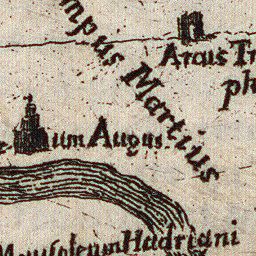 mpus Martius
Arcus Tr
ph
um Augus.
Mausoleum Hadriani